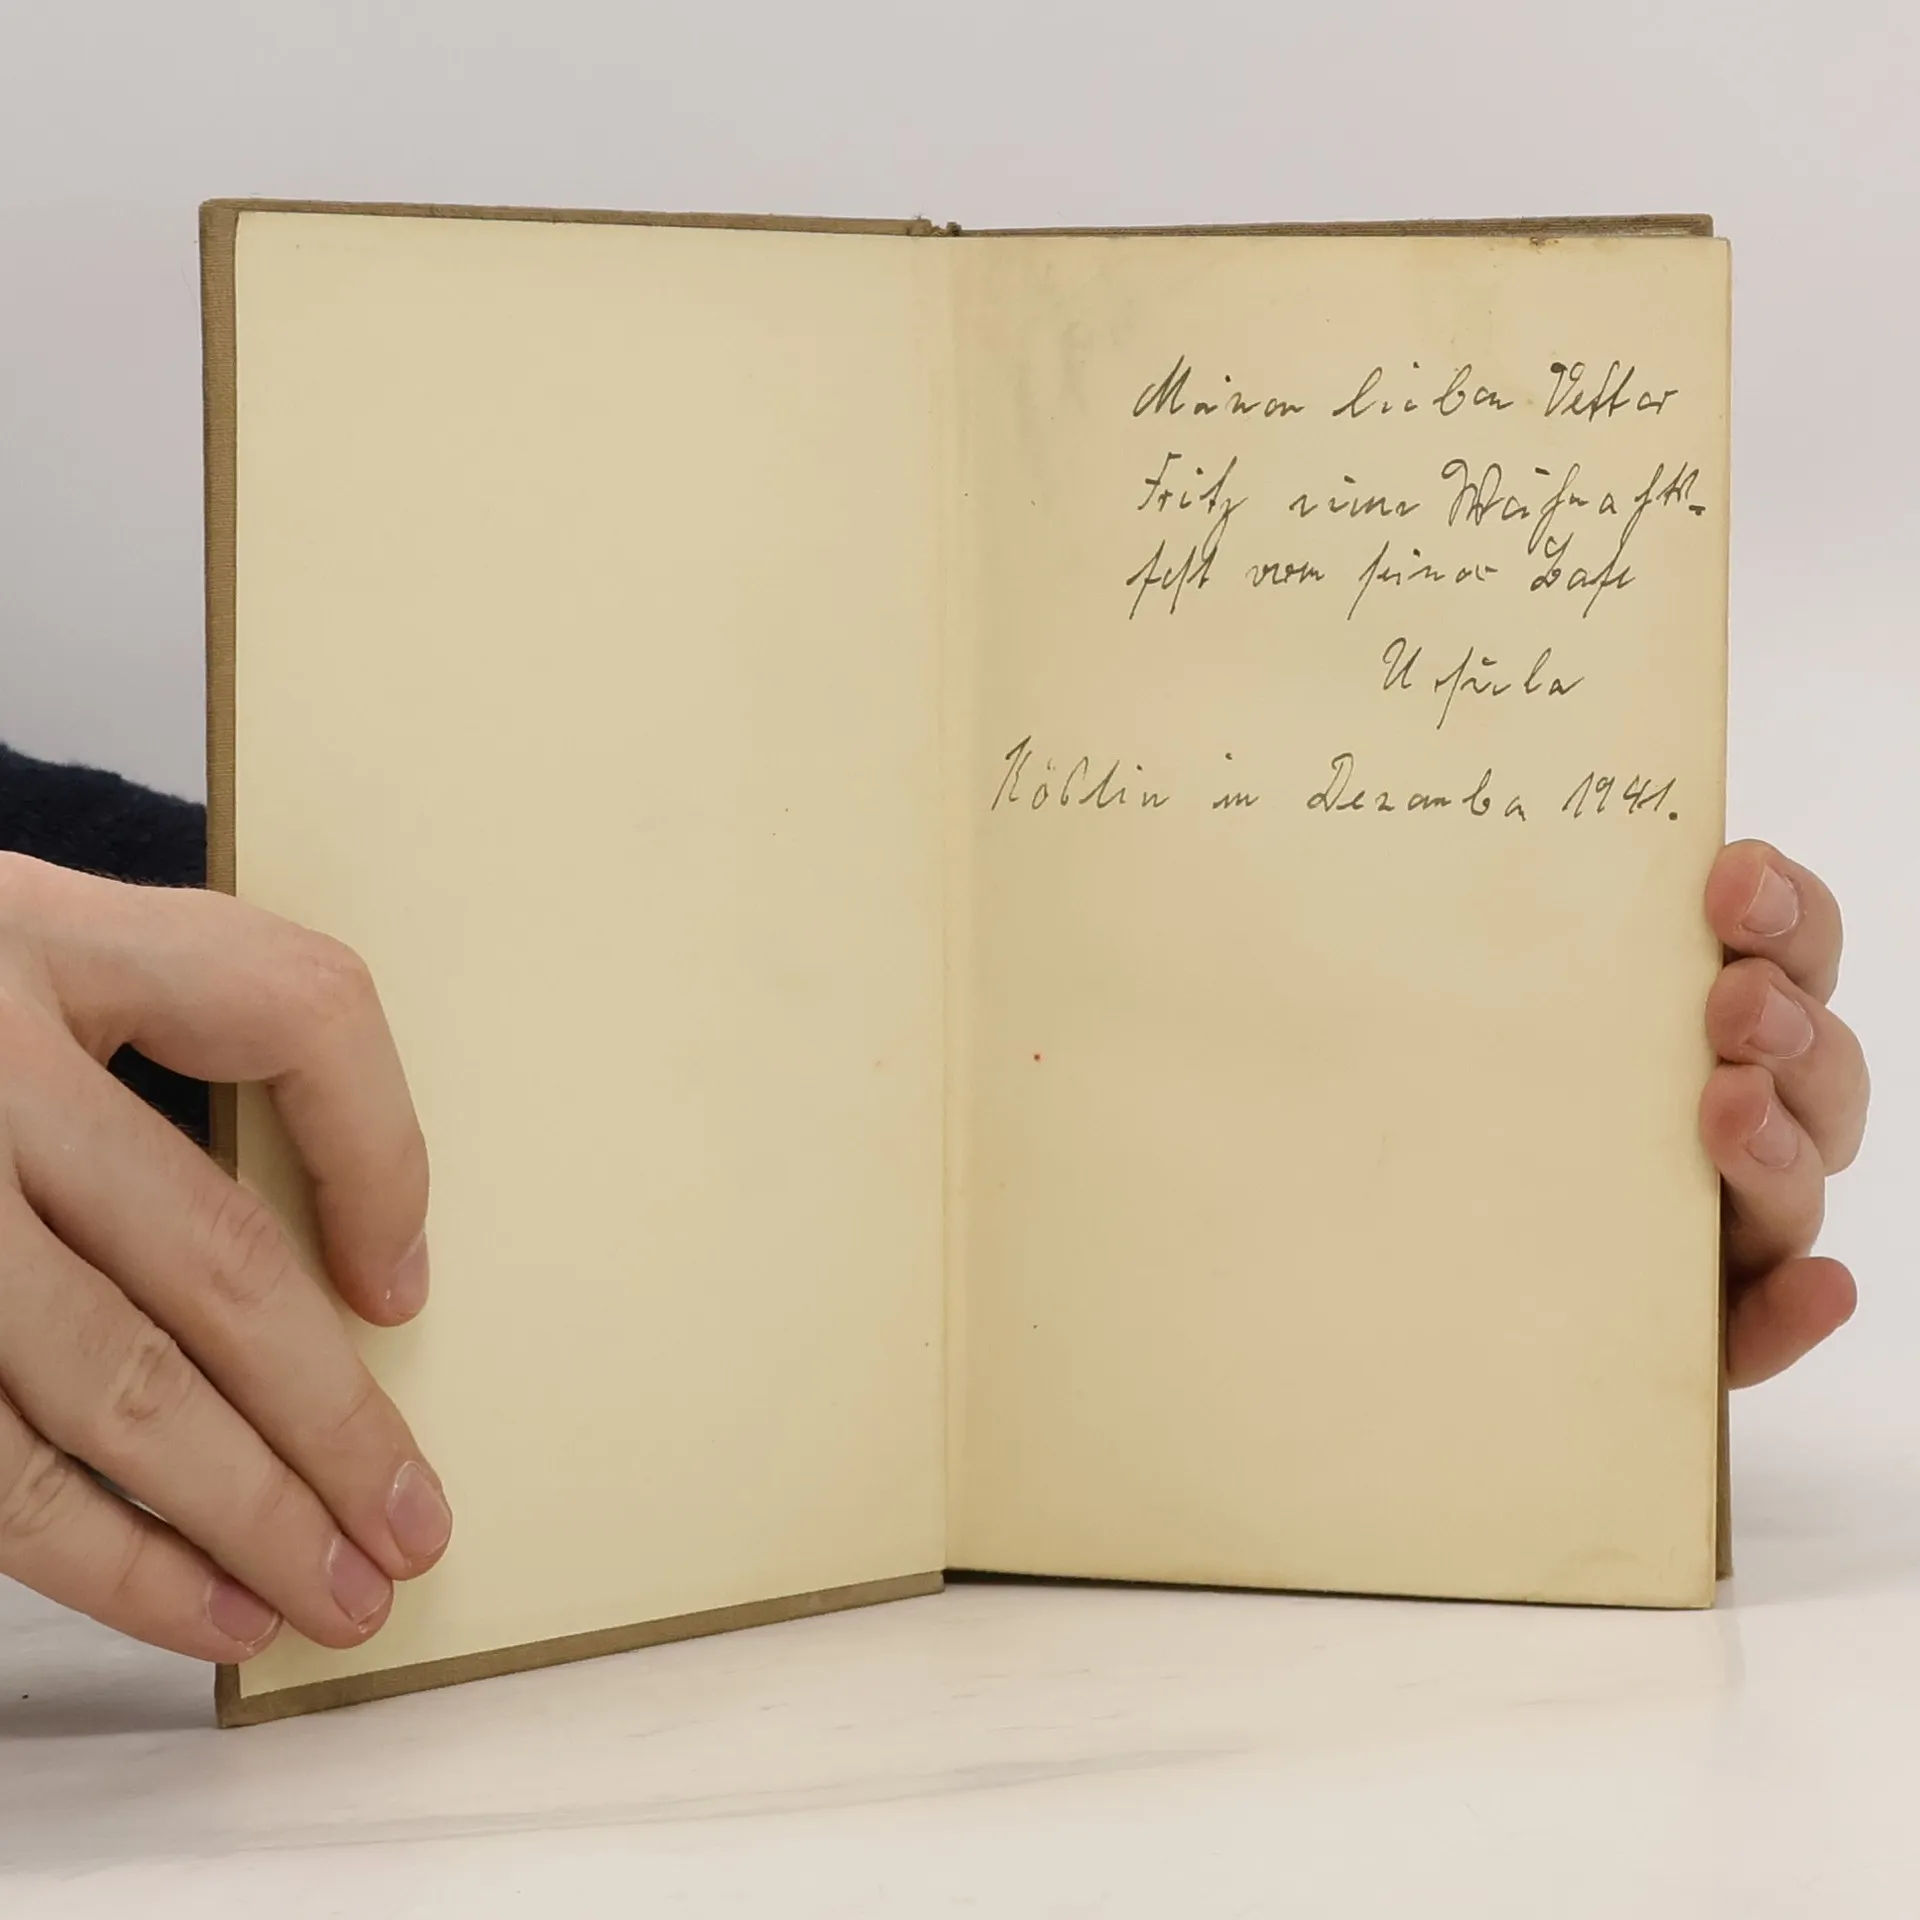 Meinem lieben Vetter
Fritz zum Weihnachts-
fest von seiner Base
Ursula
Köslin im Dezember 1941.